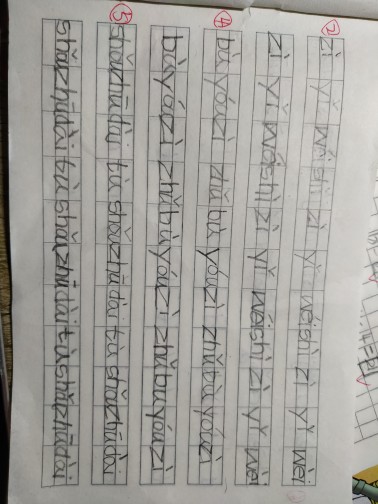 ② zì yǐ wéishì zì yǐ wéishì zì yǐ wéi
zì yǐ wéishì zì yǐ wéishì zì yǐ wéi
④ bù yóuzì zhǔ bù yóuzì zhǔ bù yóuzì
bù yóuzì zhǔ bù yóuzì zhǔ bù yóuzì
⑤ shǒuzhūdài tù shǒuzhūdài tù shǒuzhūdài
shǒuzhūdài tù shǒuzhūdài tù shǒuzhūdài